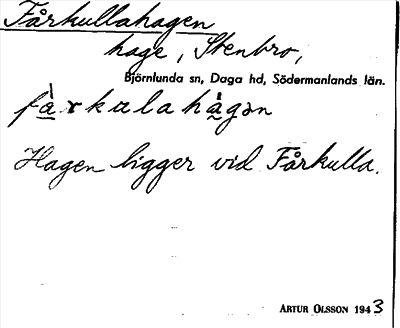 Fårkullahagen
hage, Stenbro,
Björnlunda sn, Daga hd, Södermanlands län.
fà̱rkulahå̱gən
Hagen ligger vid Fårkulla.
ARTUR OLSSON 1943